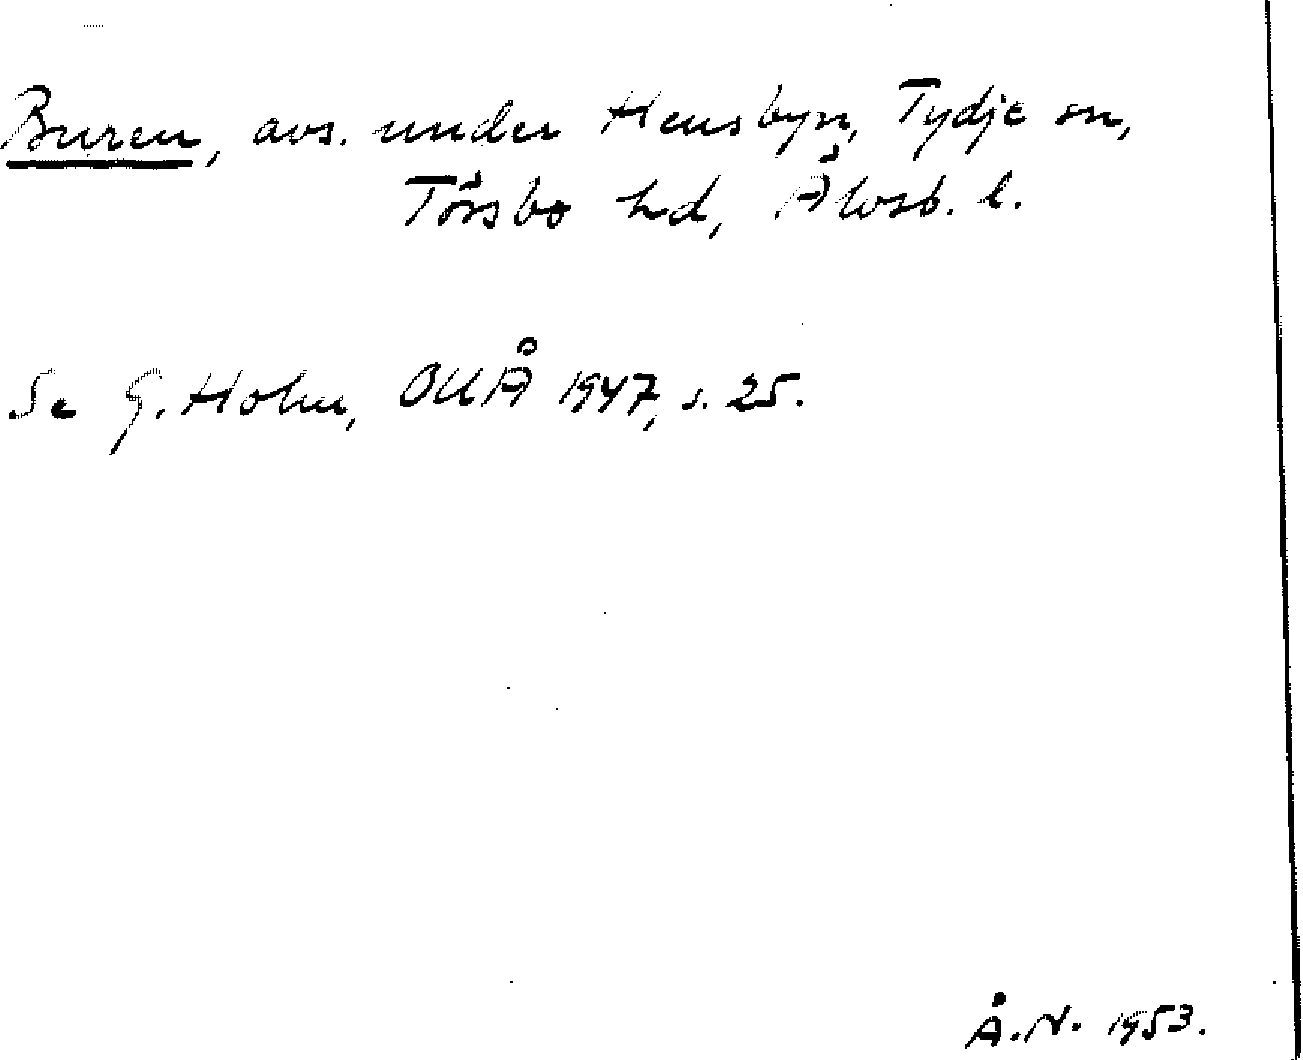 Buren, avs. under Hensbyn, Tydje sn,
Tössbo hd, Älvsb. l.
Se G. Holm, OUÅ 1947, s. 25.
Å.N. 1953.